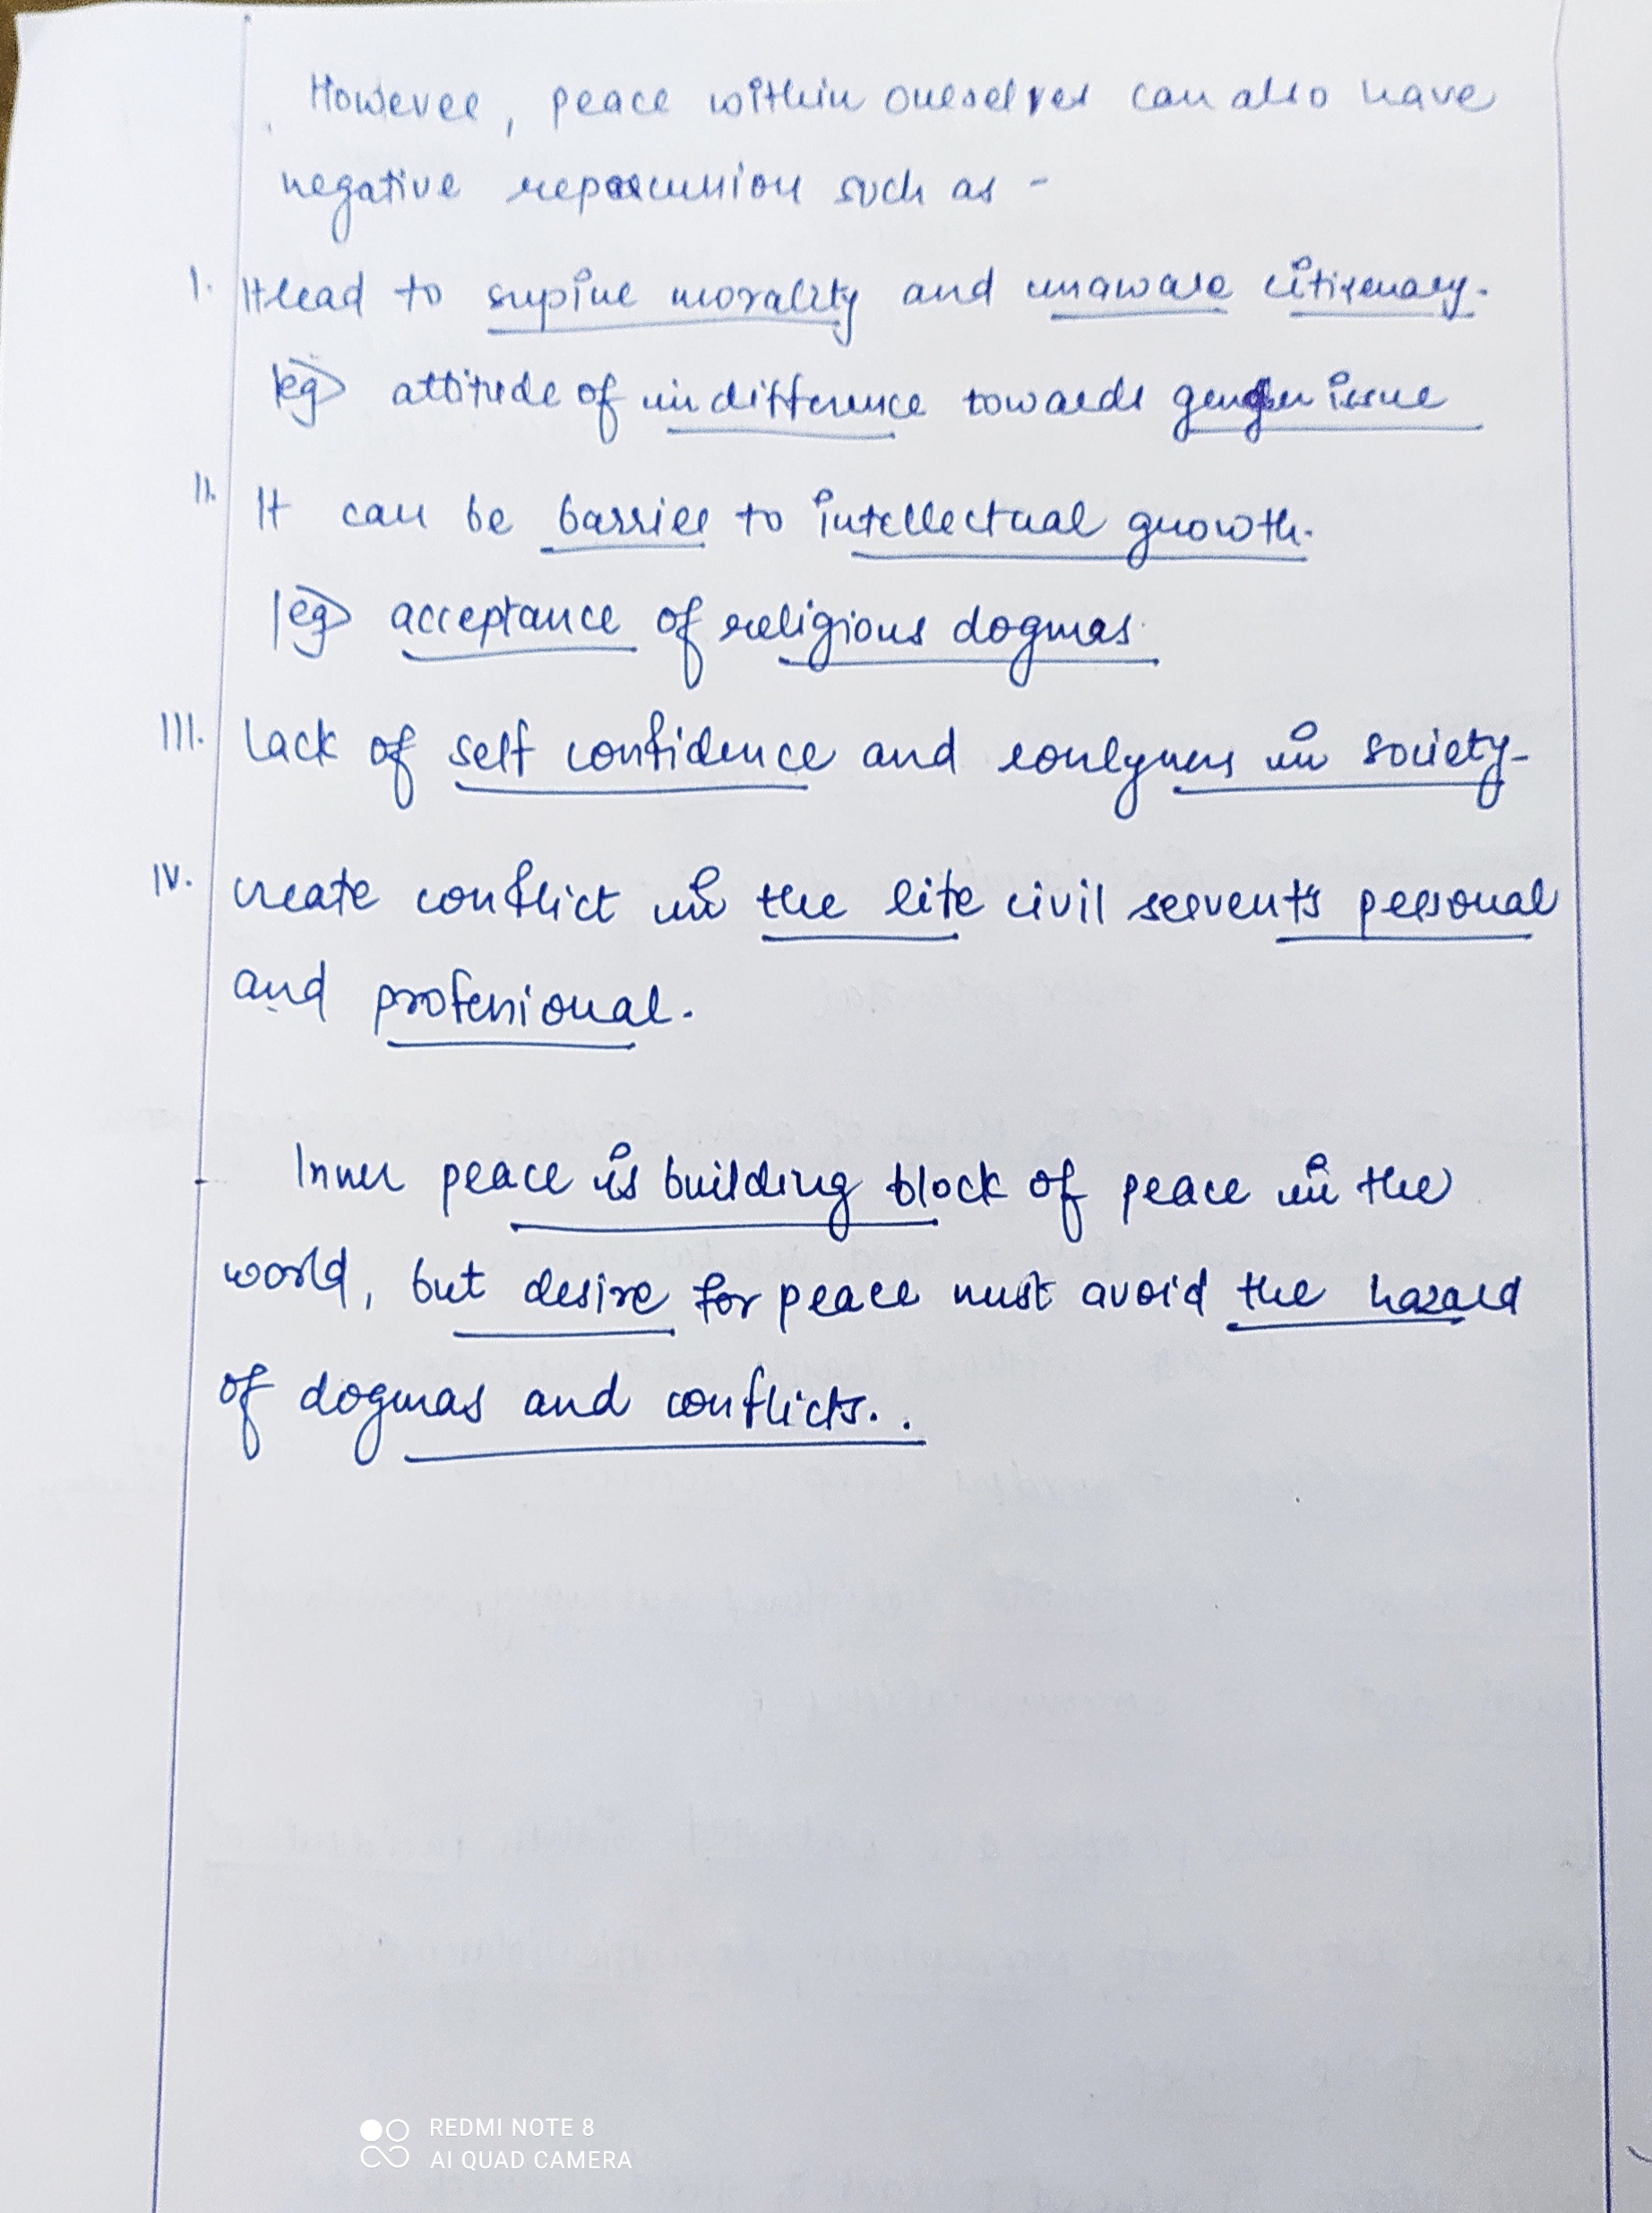 However, peace within ourselves can also have
negative repercussion such as -
I. It lead to supine morality and unaware citizenary.
eg> attitude of indifference towards gender issue
II. It can be barrier to intellectual growth.
eg> acceptance of religious dogmas.
III. Lack of self confidence and lonlyness in society.
IV. create conflict in the life civil servents personal
and professional.
Inner peace is building block of peace in the
world, but desire for peace must avoid the hazard
of dogmas and conflicts..
REDMI NOTE 8
AI QUAD CAMERA